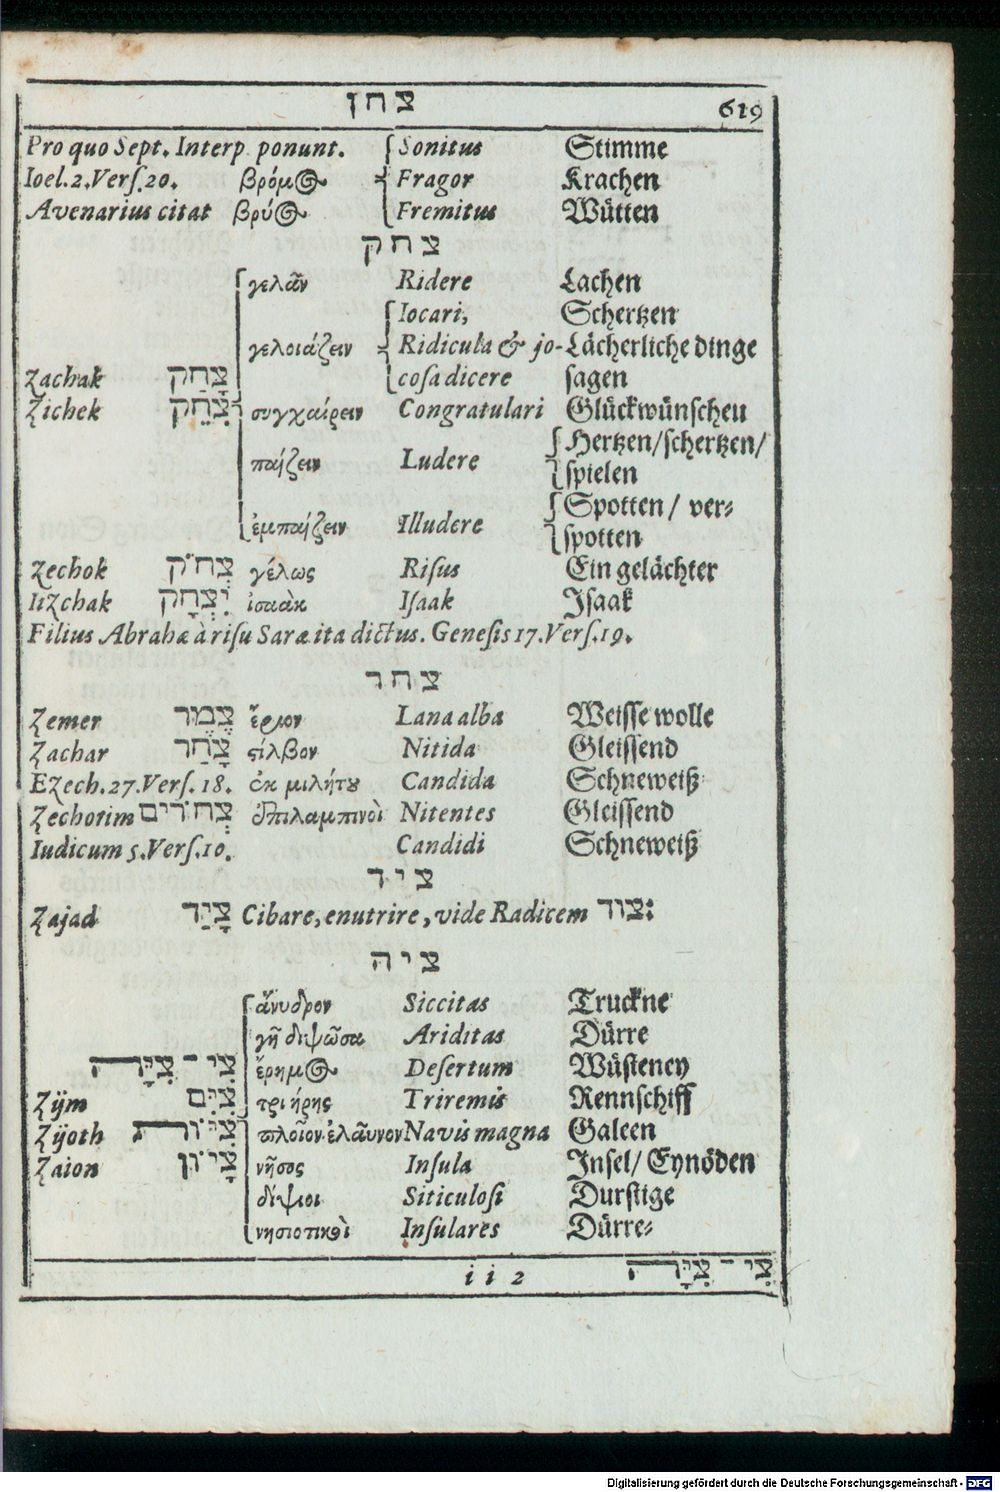 צחן 619
Pro quo Sept. Interp. ponunt. Sonitus Stimme
Ioel. 2. Vers. 20. βρόμος Fragor Krachen
Avenarius citat βρύος Fremitus Wütten
צחק
γελᾶν Ridere Lachen
Iocari, Schertzen
γελοιάζειν Ridicula & jo- Lächerliche dinge
Zachak צָחַק cosa dicere sagen
Zichek צִחֵק συγχαίρειν Congratulari Glückwünschen
παίζειν Ludere Hertzen/schertzen/
spielen
ἐμπαίζειν Illudere Spotten / ver-
spotten
Zechok צְחֹק γέλως Risus Ein gelächter
Iizchak יִצְחָק ἰσαὰκ Isaak Isaak
Filius Abrahæ à risu Saræ ita dictus. Genesis 17. Vers. 19.
צחר
Zemer צֶמֶר ἔριον Lana alba Weisse wolle
Zachar צָחַר στίλβον Nitida Gleissend
Ezech. 27. Vers. 18. ἐκ μιλήτου Candida Schneweiß
Zechorim צְחֹרִים ἐπιλαμπινοὶ Nitentes Gleissend
Iudicum 5. Vers. 10. Candidi Schneweiß
ציד
Zajad צָיַד Cibare, enutrire, vide Radicem צוד:
ציה
ἄνυδρον Siccitas Truckne
γῆ διψῶσα Ariditas Dürre
צִי־צִיָּה ἔρημος Desertum Wüsteney
Zijm צִיִּם τριήρης Triremis Rennschiff
Zijoth צִיּוֹת πλοῖον ἐλαῦνον Navis magna Galeen
Zaion צָיוֹן νῆσος Insula Insel/ Eynöden
δίψιοι Siticulosi Durstige
νησιοτικοὶ Insulares Dürre-
ii 2 צִי־צִיָּה
Digitalisierung gefördert durch die Deutsche Forschungsgemeinschaft - DFG